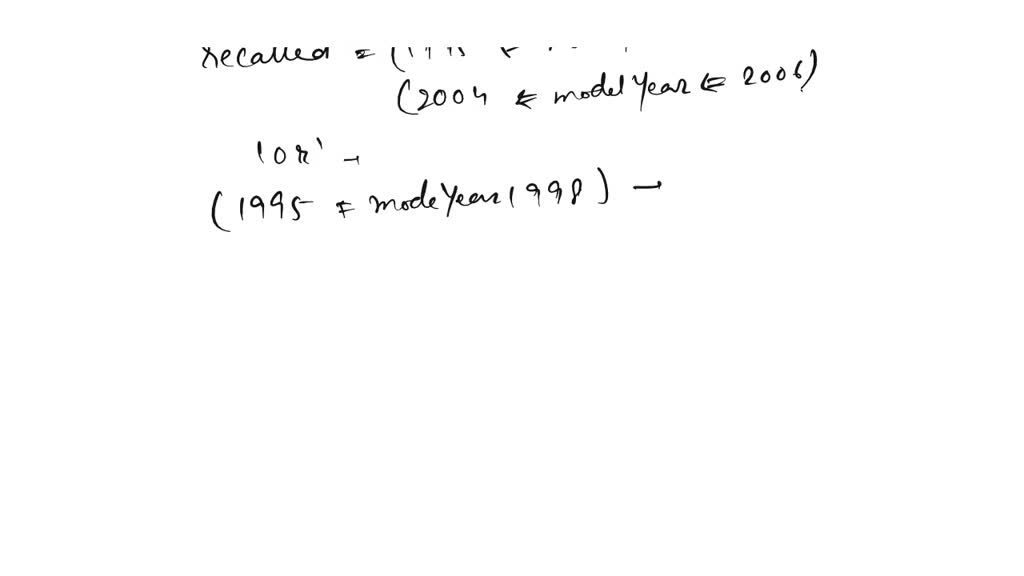 recalled = (199
(2004 ≤ modelYear ≤ 2006)
'or' →
(1995 ≤ modeYear 1998) →